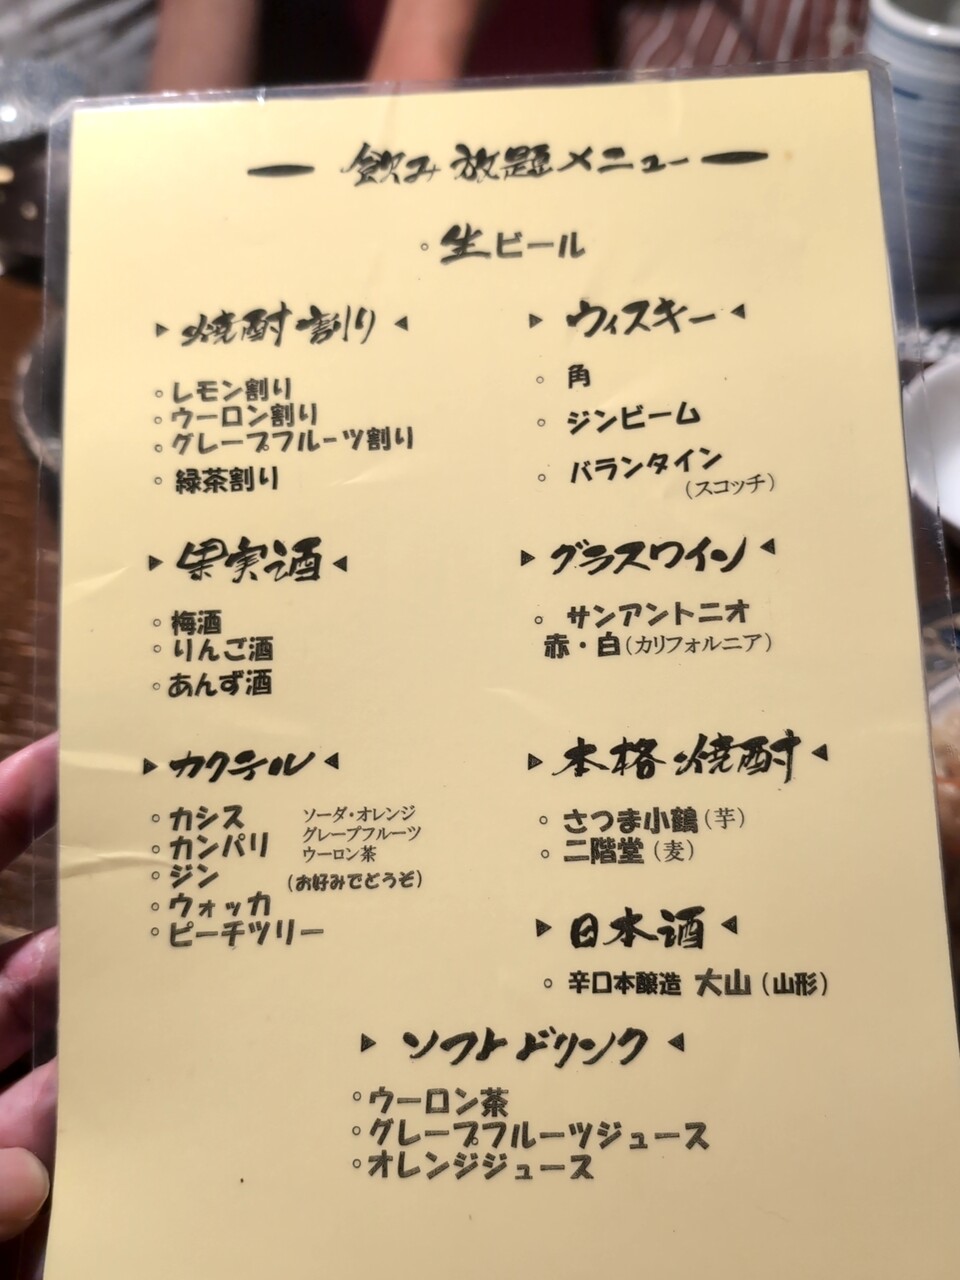 飲み放題メニュー
◦生ビール
▶焼酎割り◀
◦レモン割り
◦ウーロン割り
◦グレープフルーツ割り
◦緑茶割り
▶果実酒◀
◦梅酒
◦りんご酒
◦あんず酒
▶カクテル◀
◦カシス
◦カンパリ
◦ジン
◦ウォッカ
◦ピーチツリー
ソーダ・オレンジ
グレープフルーツ
ウーロン茶
(お好みでどうぞ)
▶ウィスキー◀
◦角
◦ジンビーム
◦バランタイン
(スコッチ)
▶グラスワイン◀
◦サンアントニオ
赤・白(カリフォルニア)
▶本格焼酎◀
◦さつま小鶴(芋)
◦二階堂(麦)
▶日本酒◀
◦辛口本醸造 大山(山形)
▶ソフトドリンク◀
◦ウーロン茶
◦グレープフルーツジュース
◦オレンジジュース